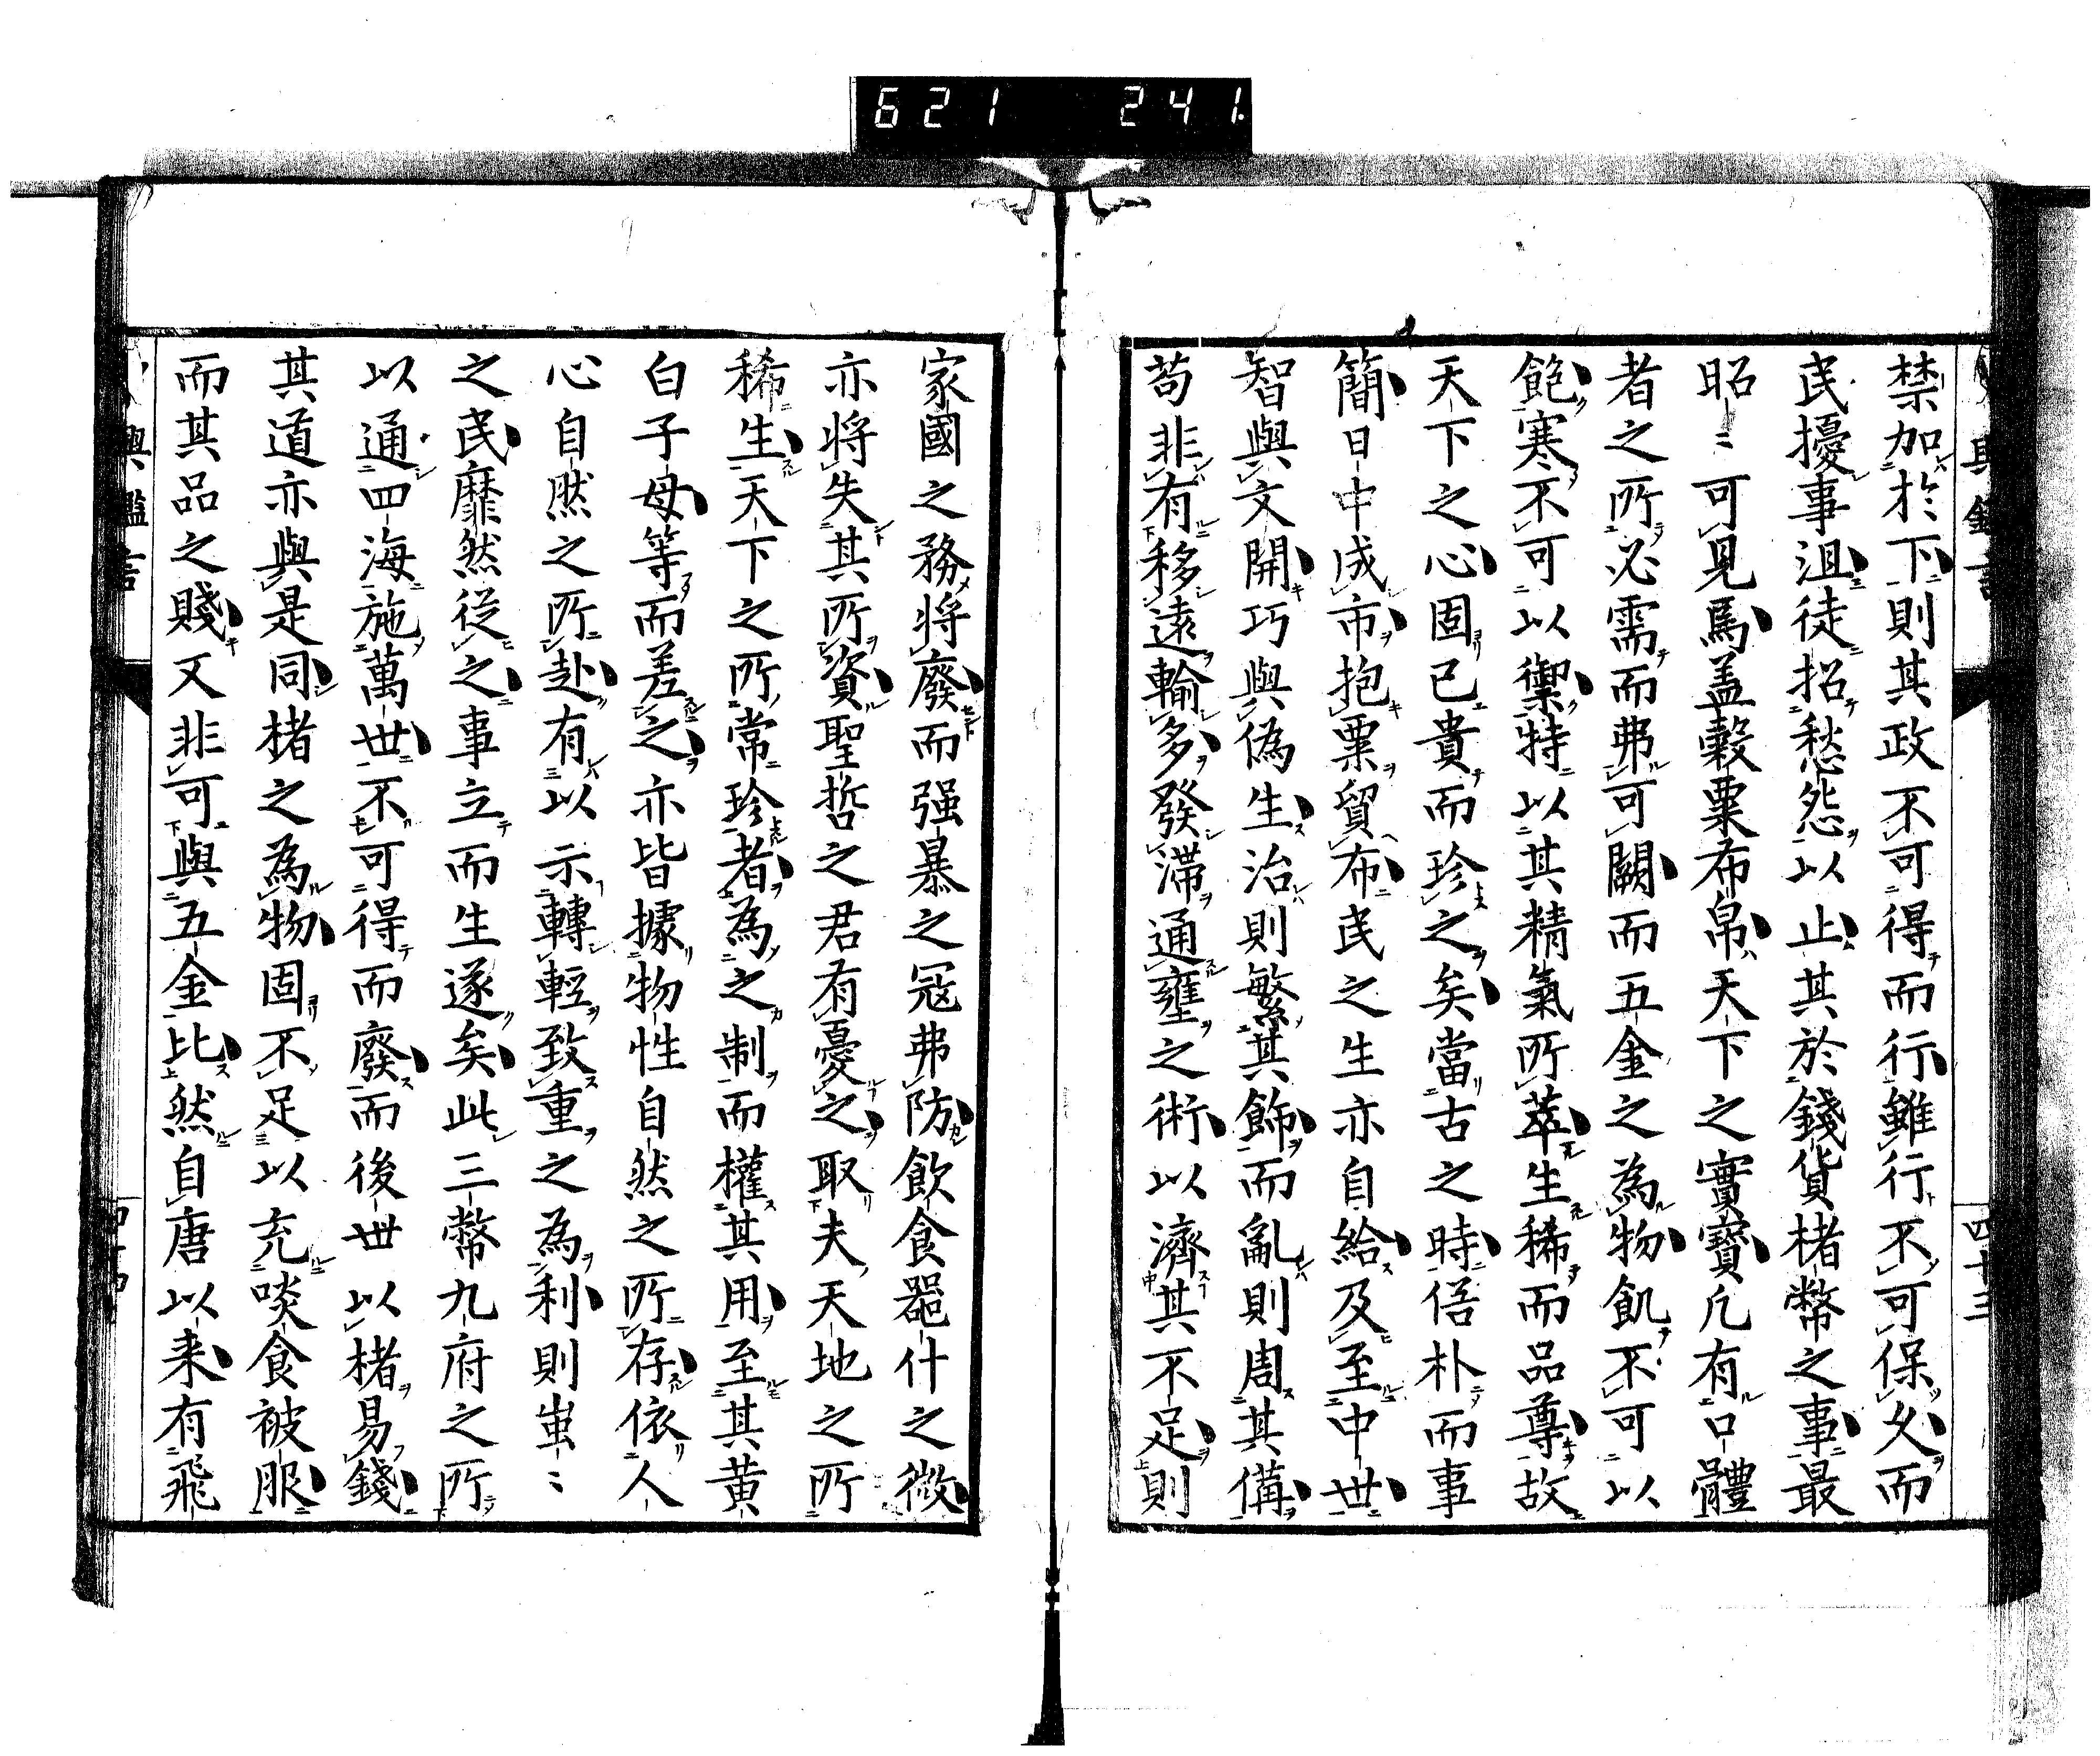 621 241.
禁加於下則其政不可得而行雖行不可保久而
民擾事沮徒招愁怨以止其於錢貨楮幣之事最
昭〻可見焉盖穀粟布帛天下之實寶凢有口體
者之所必需而弗可闕而五金之為物飢不可以
飽寒不可以禦特以其精氣所萃生稀而品尊故
天下之心固已貴而珍之矣當古之時俗朴而事
簡日中成市抱粟貿布民之生亦自給及至中世
智與文開巧與偽生治則繁其飾而亂則周其備
苟非有移遠輸多發滯通壅之術以濟其不足則
四十三
家國之務將廢而强暴之冦弗防飲食器什之微
亦將失其所資聖哲之君有憂之取夫天地之所
稀生天下之所常珍者為之制而權其用至其黃
白子母等而差之亦皆據物性自然之所存依人
心自然之所赴有以示轉輕致重之為利則蚩〻
之民靡然從之事立而生遂矣此三幣九府之所
以通四海施萬世不可得而廢而後世以楮易錢
其道亦與是同楮之為物固不足以充啖食被服
而其品之賤又非可與五金比然自唐以来有飛